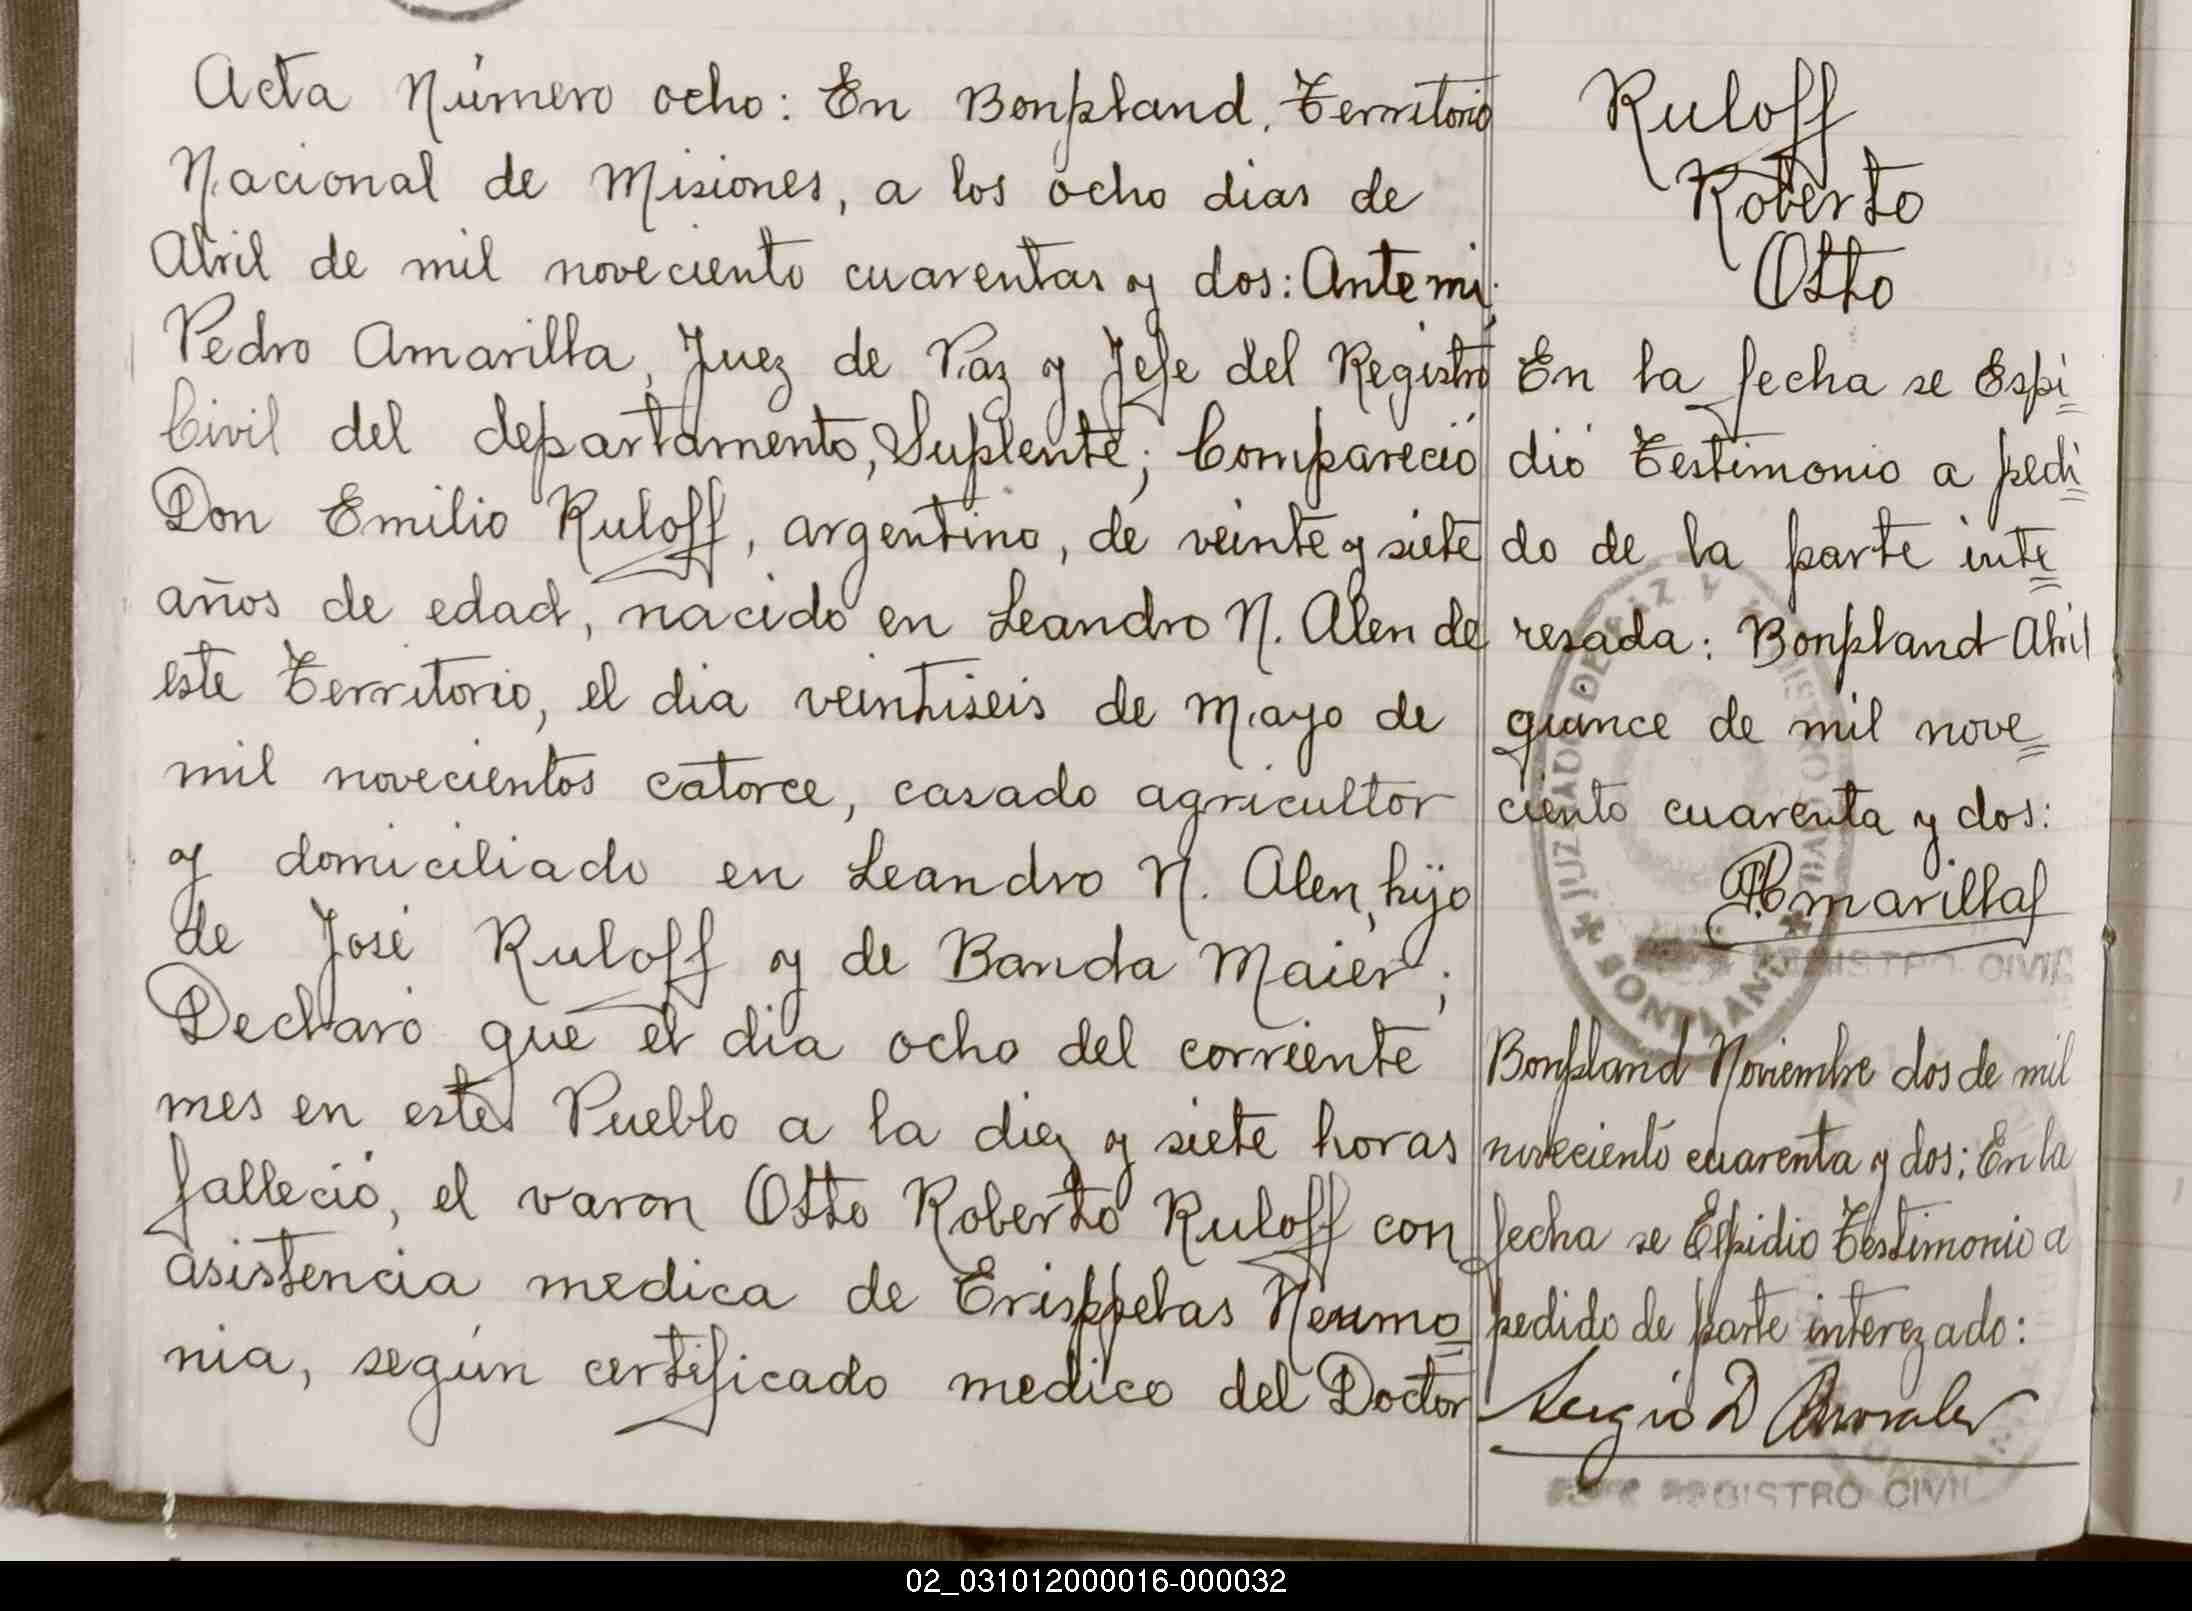 Acta Número ocho: En Bonpland, Territorio
Nacional de Misiones, a los ocho dias de
Abril de mil noveciento cuarentas y dos: Ante mi,
Pedro Amarilla, Juez de Paz y Jefe del Registro
Civil del departamento, Suplente; Compareció
Don Emilio Ruloff, argentino, de veinte y siete
años de edad, nacido en Leandro N. Alen de
este Territorio, el dia veintiseis de Mayo de
mil novecientos catorce, casado agricultor
y domiciliado en Leandro N. Alen, hijo
de José Ruloff y de Banda Maier;
Declaró que el dia ocho del corriente
mes en este Pueblo a la diez y siete horas
falleció, el varon Otto Roberto Ruloff con
asistencia medica de Erisppelas Neumo=
nia, según certificado medico del Doctor
Ruloff
Roberto
Otto
En la fecha se Espi=
dió Testimonio a pedi=
do de la parte inte=
resada: Bonpland Abril
quince de mil nove=
ciento cuarenta y dos:
PAmarilla
JUZGADO DE PAZ Y REGISTRO CIVIL
BONPLAND
REGISTRO CIVIL
Bonpland Noviembre dos de mil
noveciento cuarenta y dos; En la
fecha se Espidio Testimonio a
pedido de parte interezado:
Sergio D
REGISTRO CIVIL
02_031012000016-000032